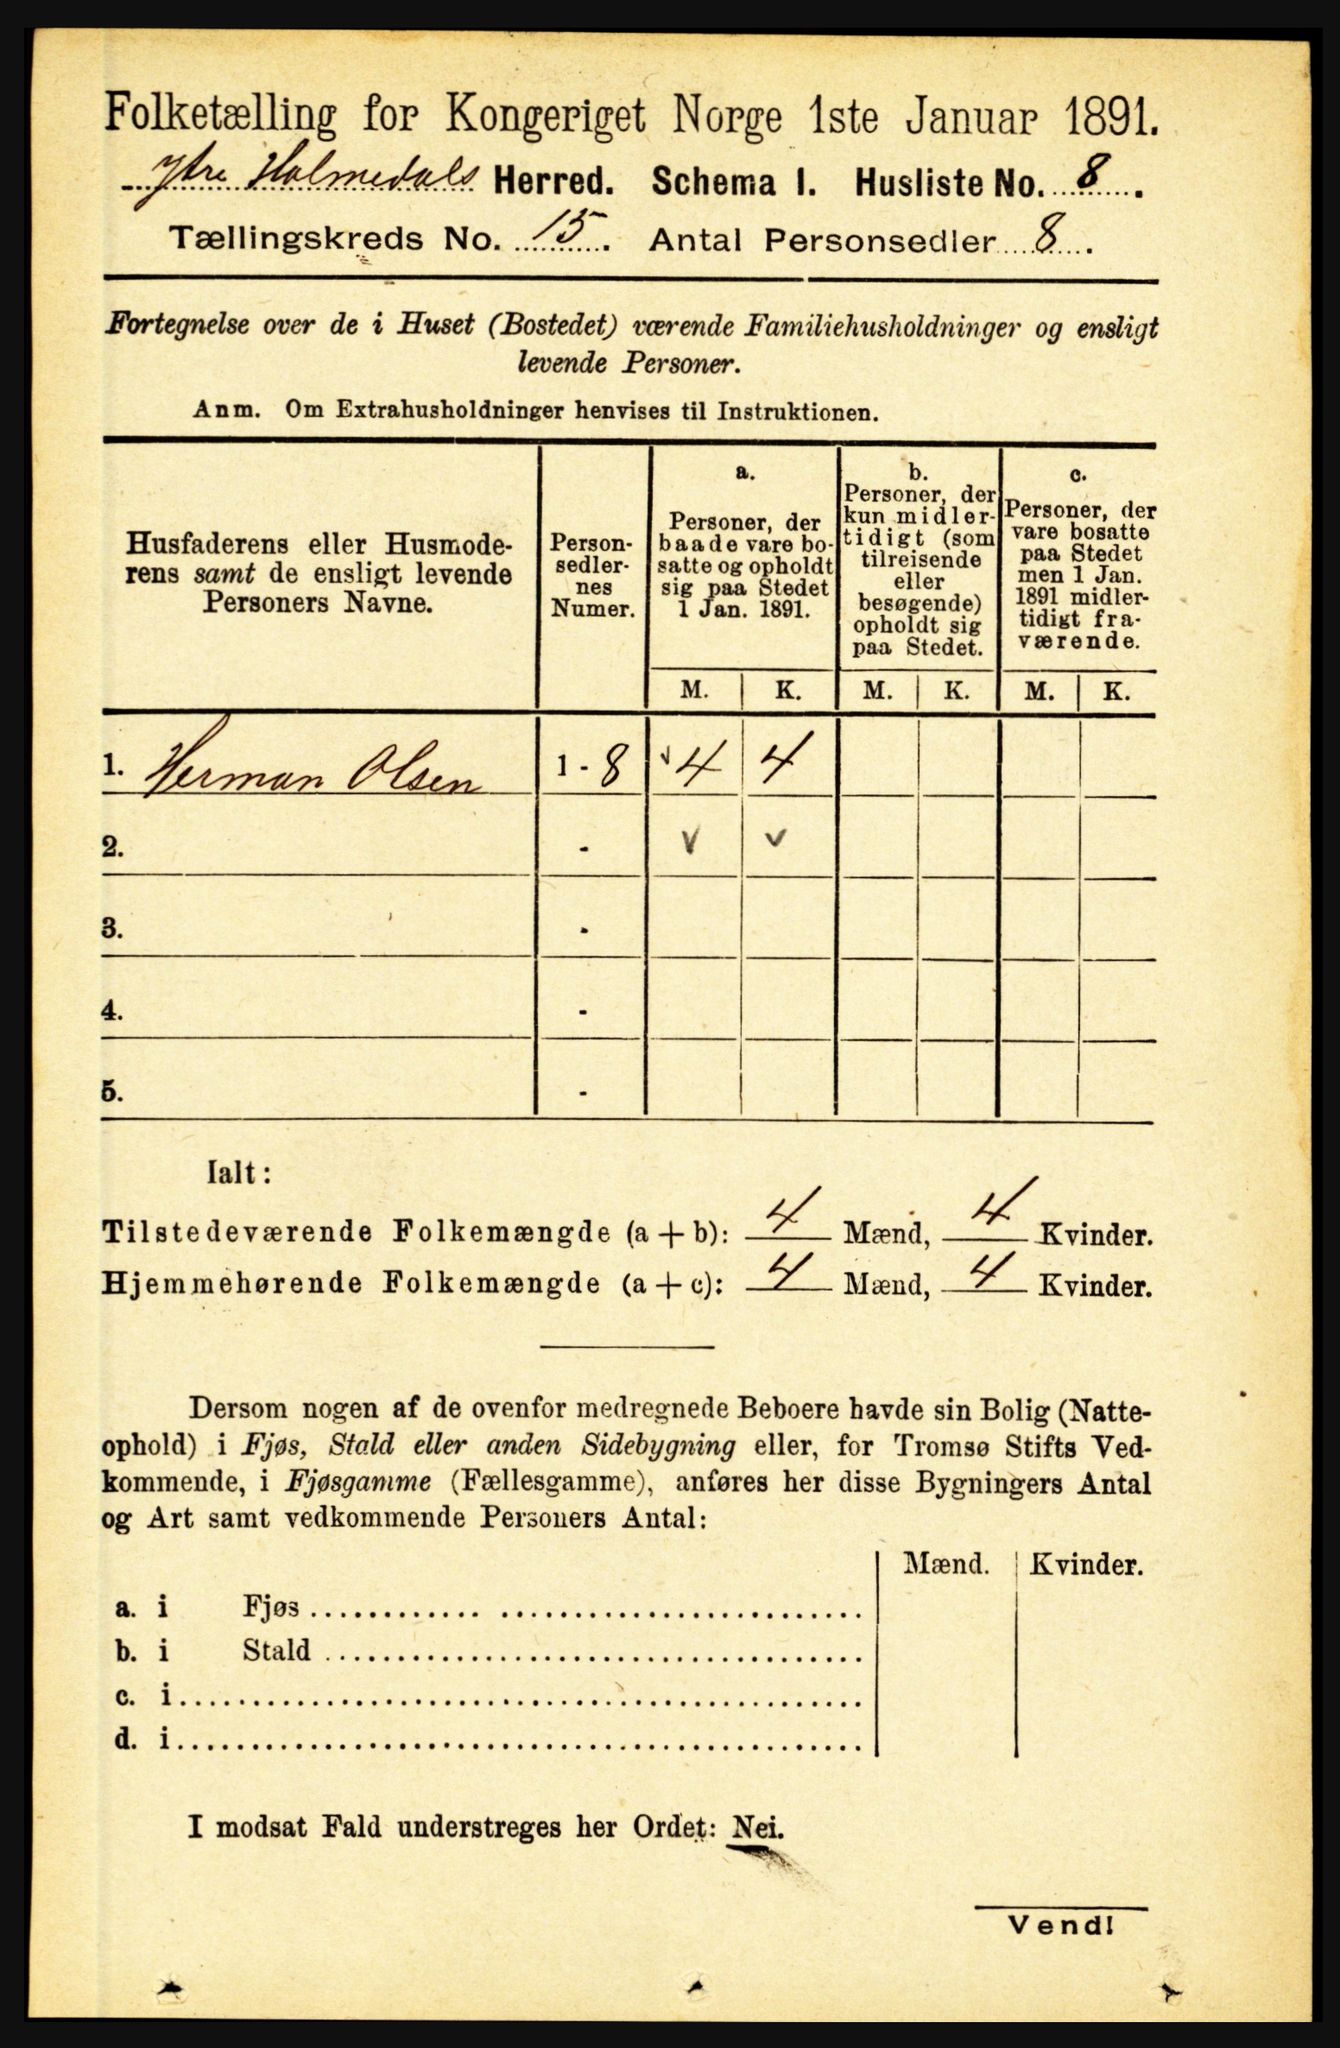 Folketælling for Kongeriget Norge 1ste Januar 1891.
Ytre Holmedals Herred. Schema I. Husliste No. 8.
Tællingskreds No. 15. Antal Personsedler 8.
Fortegnelse over de i Huset (Bostedet) værende Familiehusholdninger og ensligt
levende Personer.
Anm. Om Extrahusholdninger henvises til Instruktionen.
Husfaderens eller Husmode-
rens samt de ensligt levende
Personers Navne.
Person-
sedler-
nes
Numer.
a.
Personer, der
baade vare bo-
satte og opholdt
sig paa Stedet
1 Jan. 1891.
b.
Personer, der
kun midler-
tidigt (som
tilreisende
eller
besøgende)
opholdt sig
paa Stedet.
c.
Personer, der
vare bosatte
paa Stedet
men 1 Jan.
1891 midler-
tidigt fra-
værende.
M. K. M. K. M. K.
1. Herman Olsen 1 - 8 v 4 4
2. - v v
3. -
4. -
5. -
Ialt:
Tilstedeværende Folkemængde (a + b): 4 Mænd, 4 Kvinder.
Hjemmehørende Folkemængde (a + c): 4 Mænd, 4 Kvinder.
Dersom nogen af de ovenfor medregnede Beboere havde sin Bolig (Natte-
ophold) i Fjøs, Stald eller anden Sidebygning eller, for Tromsø Stifts Ved-
kommende, i Fjøsgamme (Fællesgamme), anføres her disse Bygningers Antal
og Art samt vedkommende Personers Antal:
Mænd. Kvinder.
a. i Fjøs
b. i Stald
c. i
d. i
I modsat Fald understreges her Ordet: Nei.
Vend!